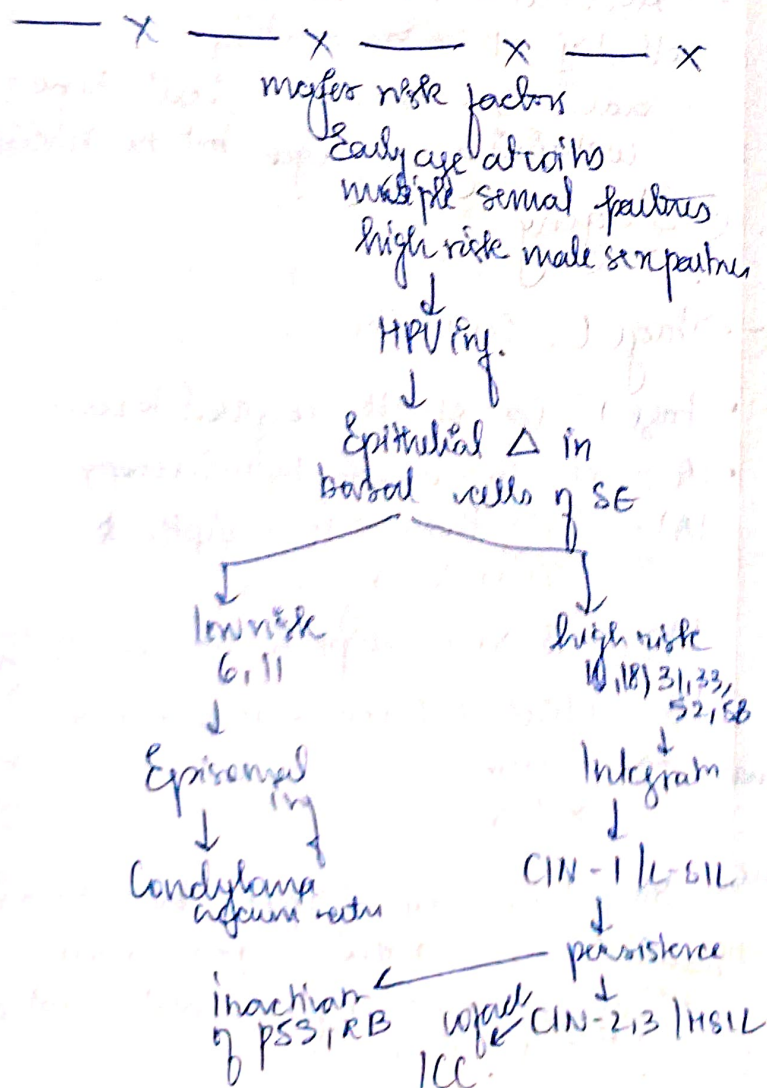 major risk factors
Early age at coitus
multiple sexual partners
high risk male sex partner
↓
HPV inf.
↓
Epithelial Δ in
basal cells of SE
low risk
6, 11
↓
Episomal
inf
↓
Condyloma
high risk
16, 18, 31, 33,
52, 58
↓
Integratn
↓
CIN-1/L-SIL
↓
persistence
↓
inactivatn
of p53, RB
cofact
CIN-2,3/HSIL
ICC